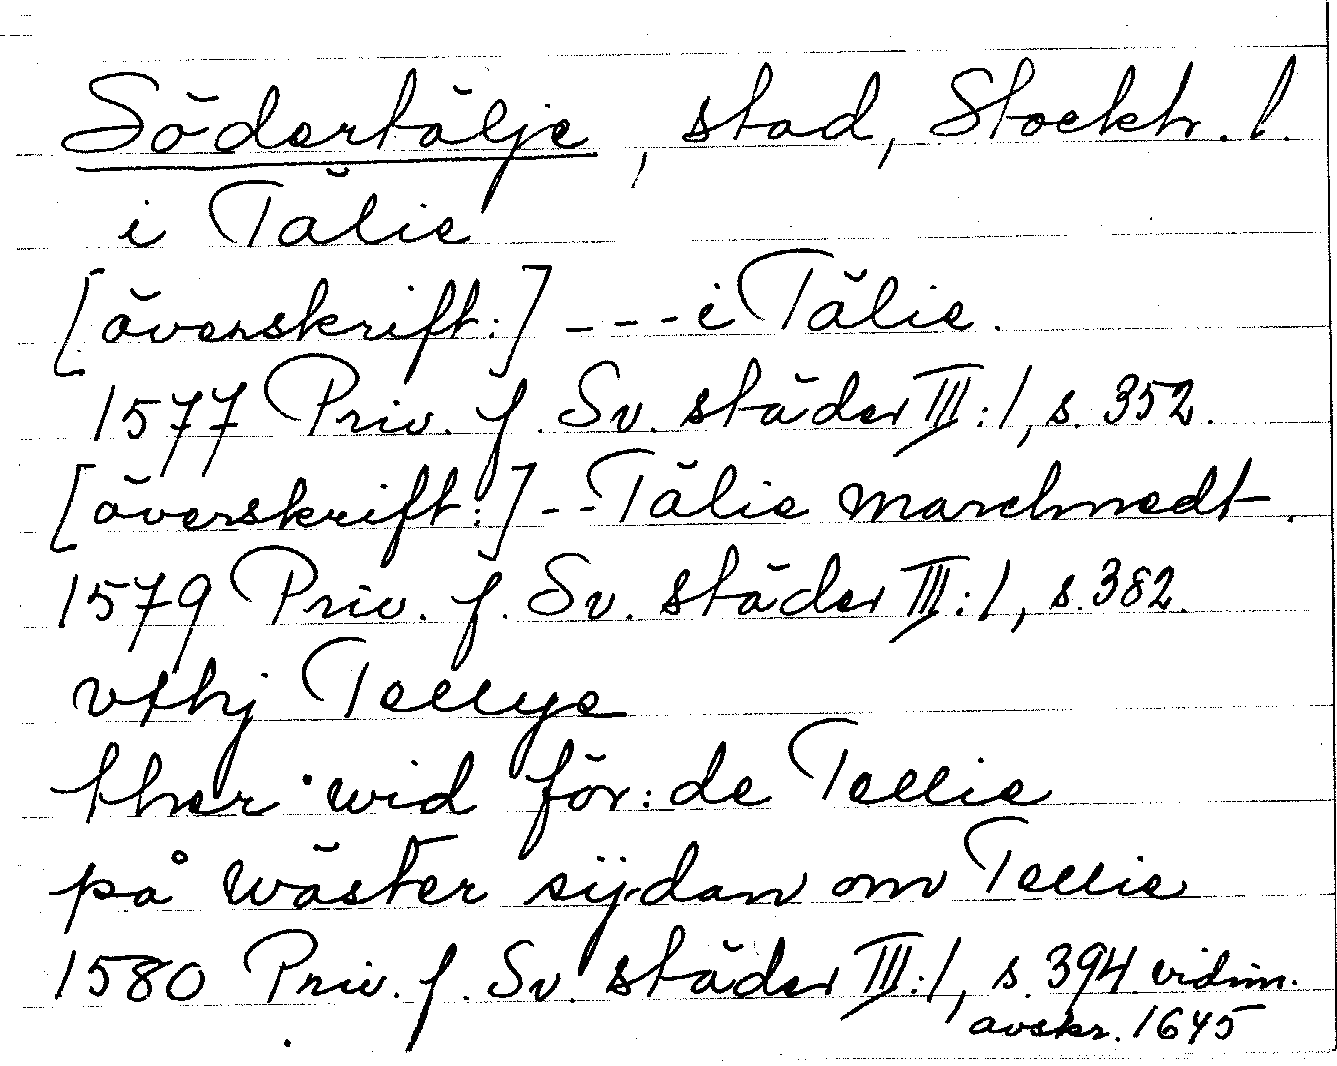 Södertälje, stad, Stockh. l.
i Tälie
[överskrift:] - - - i Tälie.
1577 Priv. f. Sv. städer III:1, s. 352.
[överskrift:] - - Tälie marchnedt.
1579 Priv. f. Sv. städer III:1, s. 382.
vthj Tellye
ther wid för:de Tellie
på wäster sijdan om Tellie
1580 Priv. f. Sv. städer III:1, s. 394 vidim.
avskr. 1645